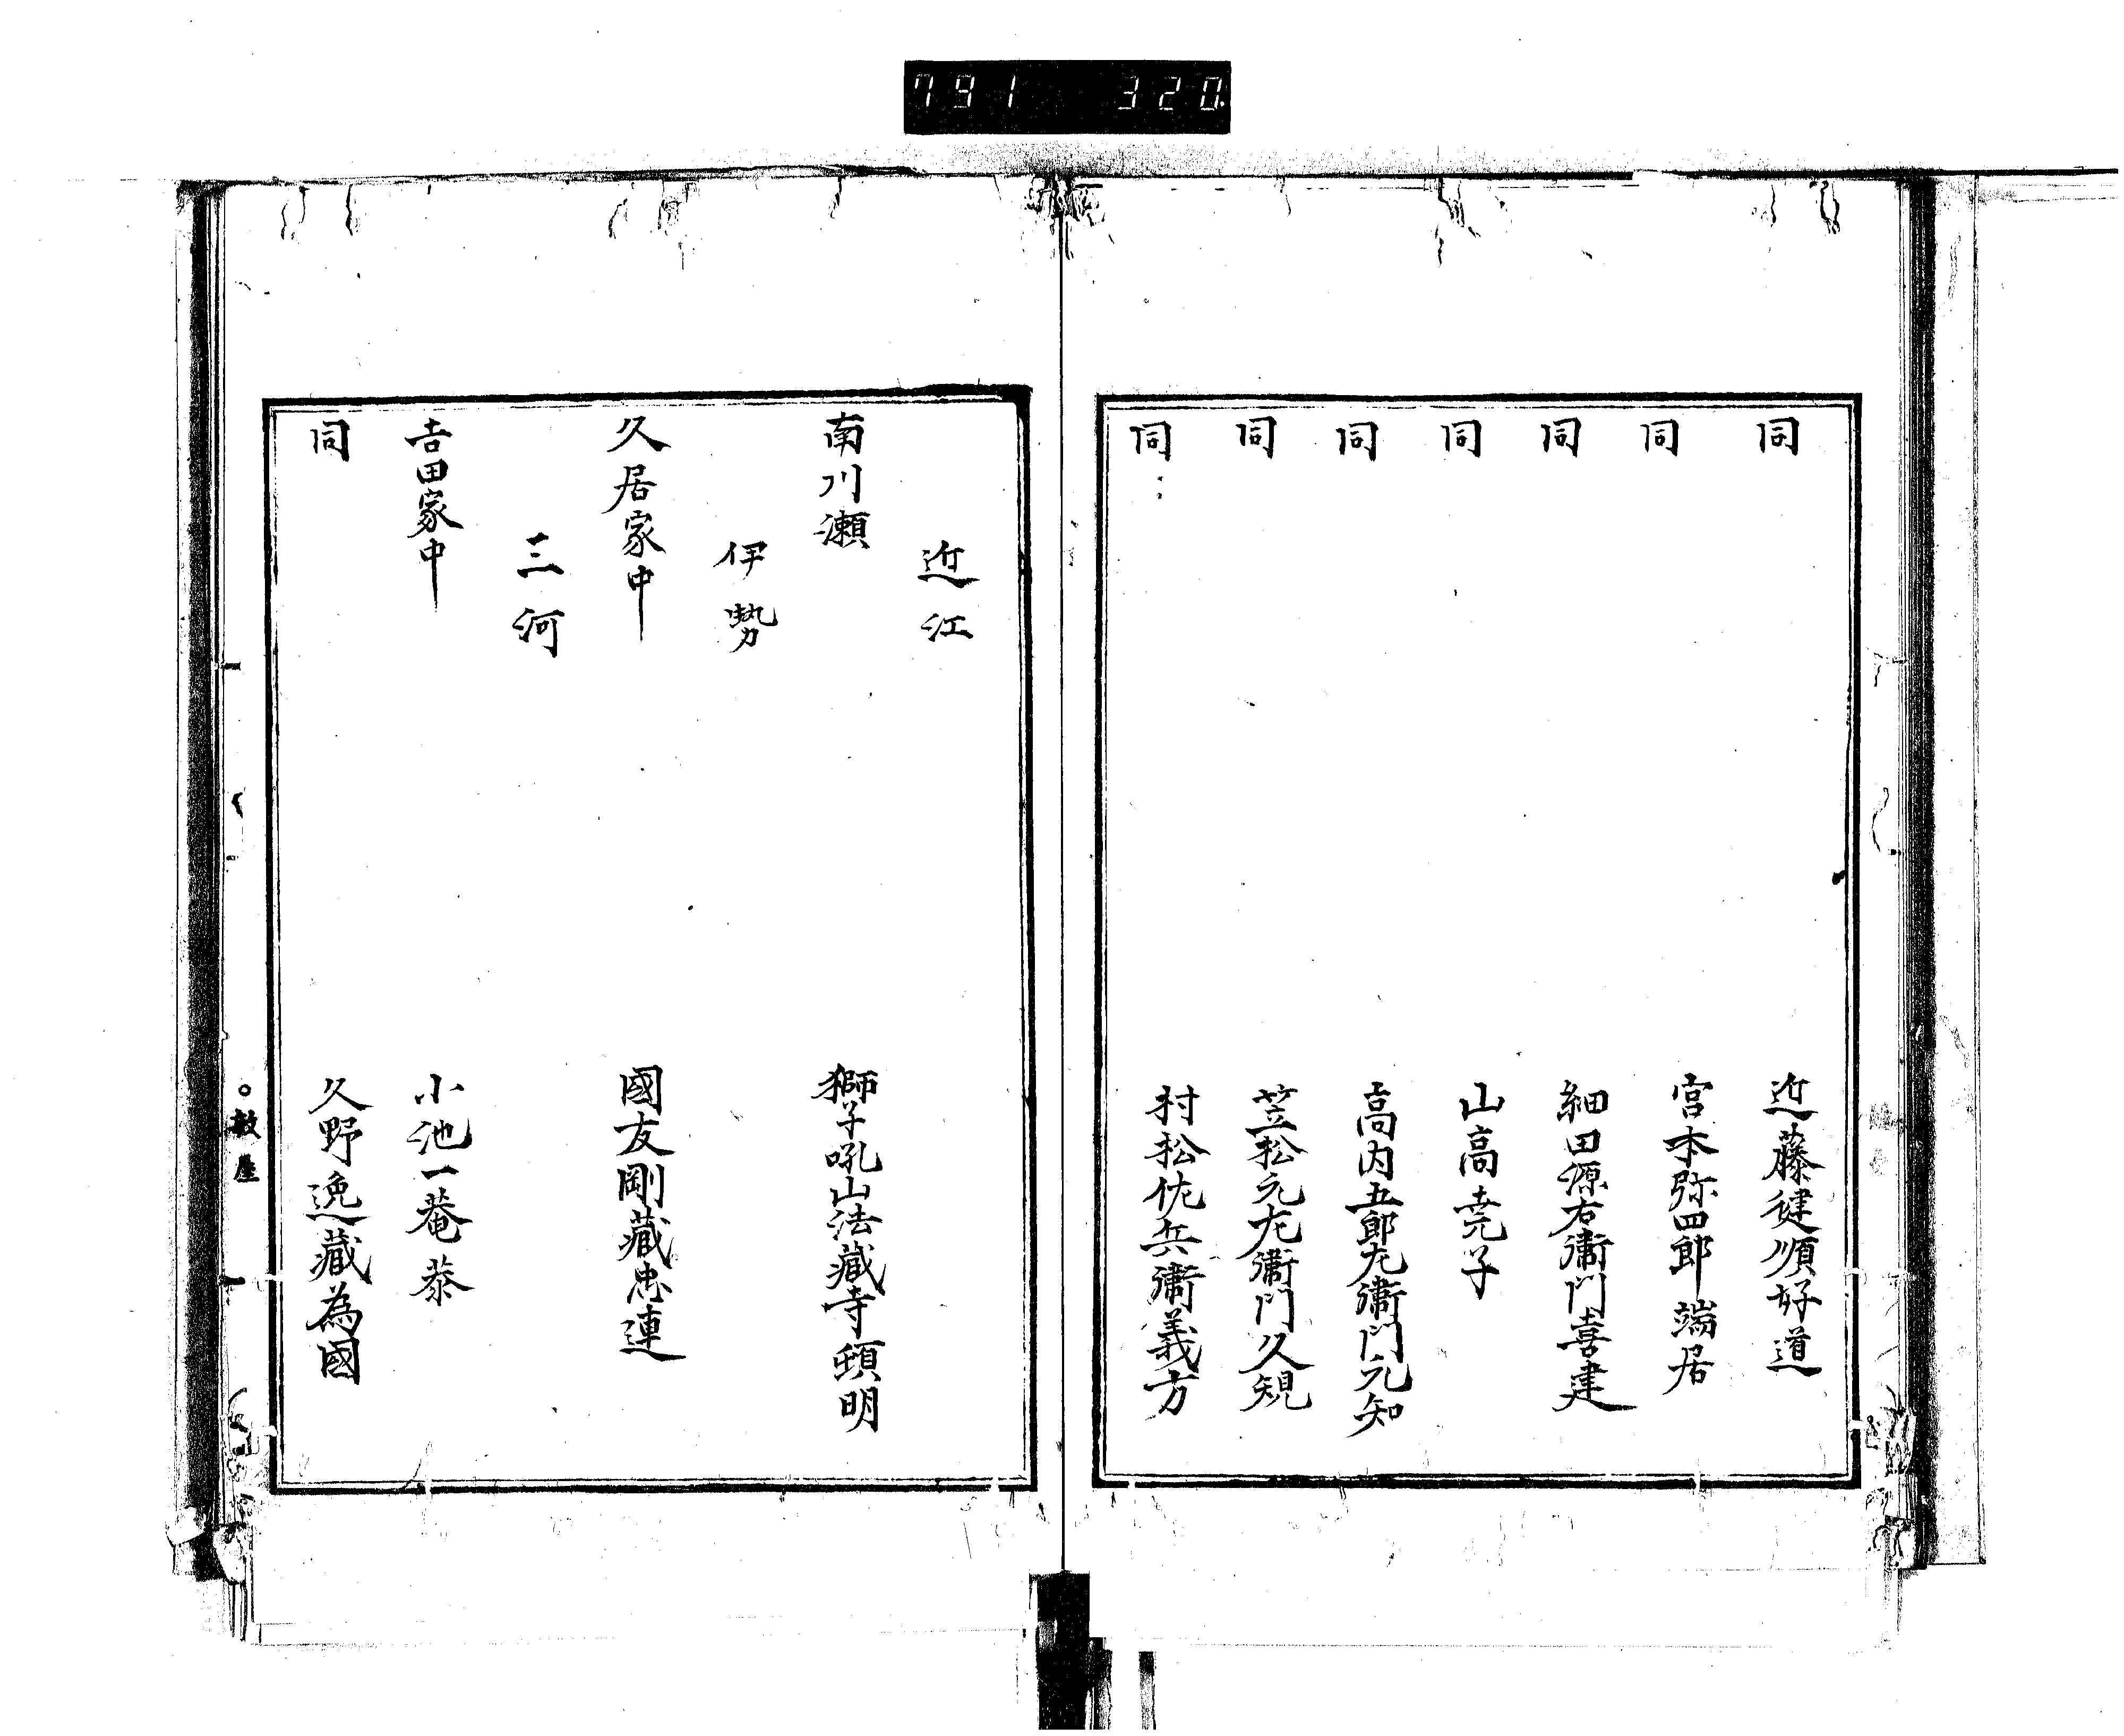 791 320
同 近藤健順好道
同 宮本弥四郎端居
同 細田源右衞門喜建
同 山高尭子
同 高内五郎左衞門元知
同 笠松元左衞門久規
同 村松佐兵衞義方
近江
南川瀬 獅子吼山法藏寺頓明
伊勢
久居家中 國友剛藏忠連
三河
吉田家中 小池一菴恭
同 久野逸藏為國